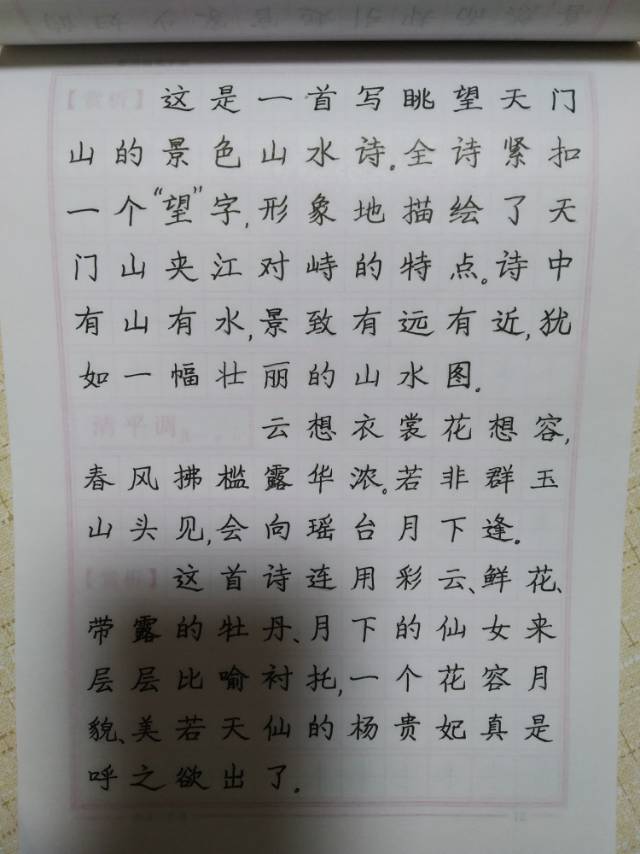 【赏析】这是一首写眺望天门
山的景色山水诗。全诗紧扣
一个“望”字,形象地描绘了天
门山夹江对峙的特点。诗中
有山有水,景致有远有近,犹
如一幅壮丽的山水图。
清平调 云想衣裳花想容,
春风拂槛露华浓。若非群玉
山头见,会向瑶台月下逢。
【赏析】这首诗连用彩云、鲜花、
带露的牡丹、月下的仙女来
层层比喻衬托,一个花容月
貌、美若天仙的杨贵妃真是
呼之欲出了.